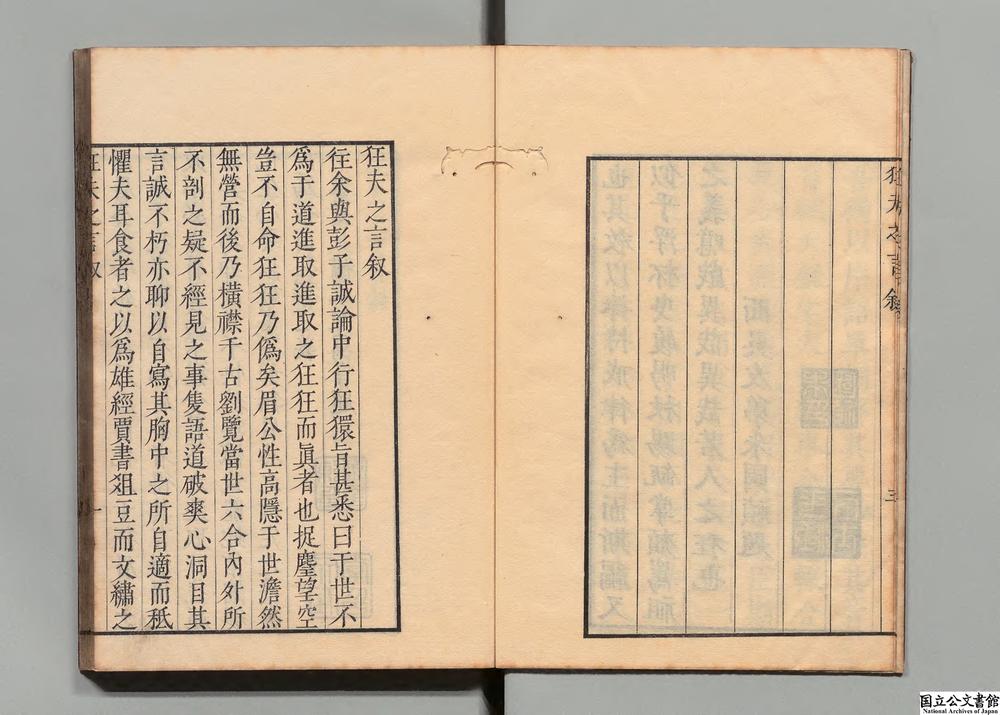 狂夫之言敘
三
狂夫之言叙
徃余與彭子誠論中行狂獧旨甚悉曰于世不
爲于道進取進取之狂狂而眞者也捉麈望空
豈不自命狂狂乃僞矣眉公性高隱于世澹然
無營而後乃橫襟千古劉覽當世六合內外所
不剖之疑不經見之事隻語道破爽心洞目其
言誠不朽亦聊以自寫其胸中之所自適而秪
懼夫耳食者之以爲雄經賈書俎豆而文繡之
狂夫之言叙
一
国立公文書館
National Archives of Japan